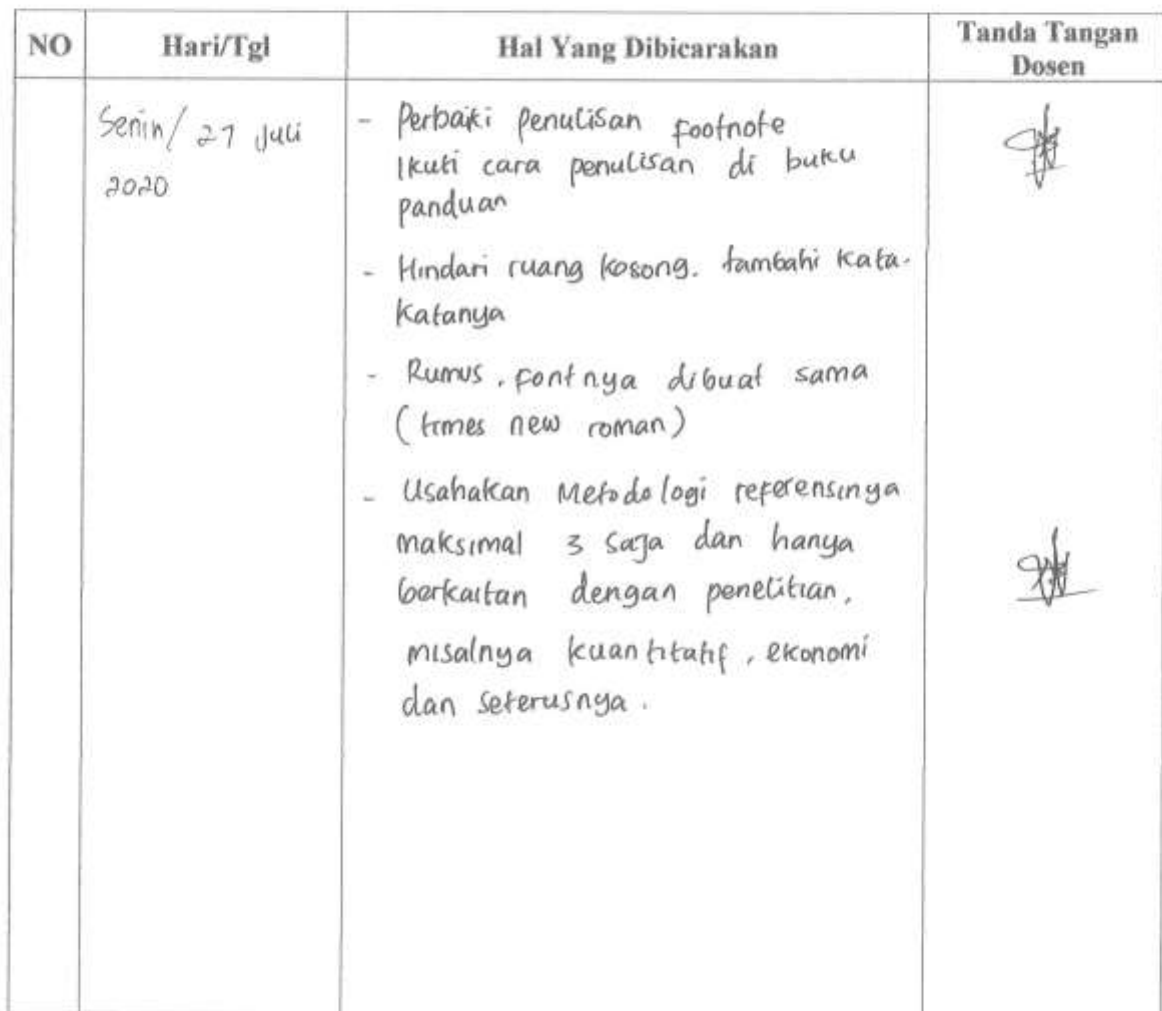 NO Hari/Tgl Hal Yang Dibicarakan Tanda Tangan
Dosen
Senin/ 27 Juli
2020
- Perbaiki penulisan footnote
Ikuti cara penulisan di buku
panduan
- Hindari ruang kosong. tambahi kata-
katanya
- Rumus, fontnya dibuat sama
(times new roman)
- Usahakan Metodologi referensinya
maksimal 3 saja dan hanya
berkaitan dengan penelitian,
misalnya kuantitatif, ekonomi
dan seterusnya.